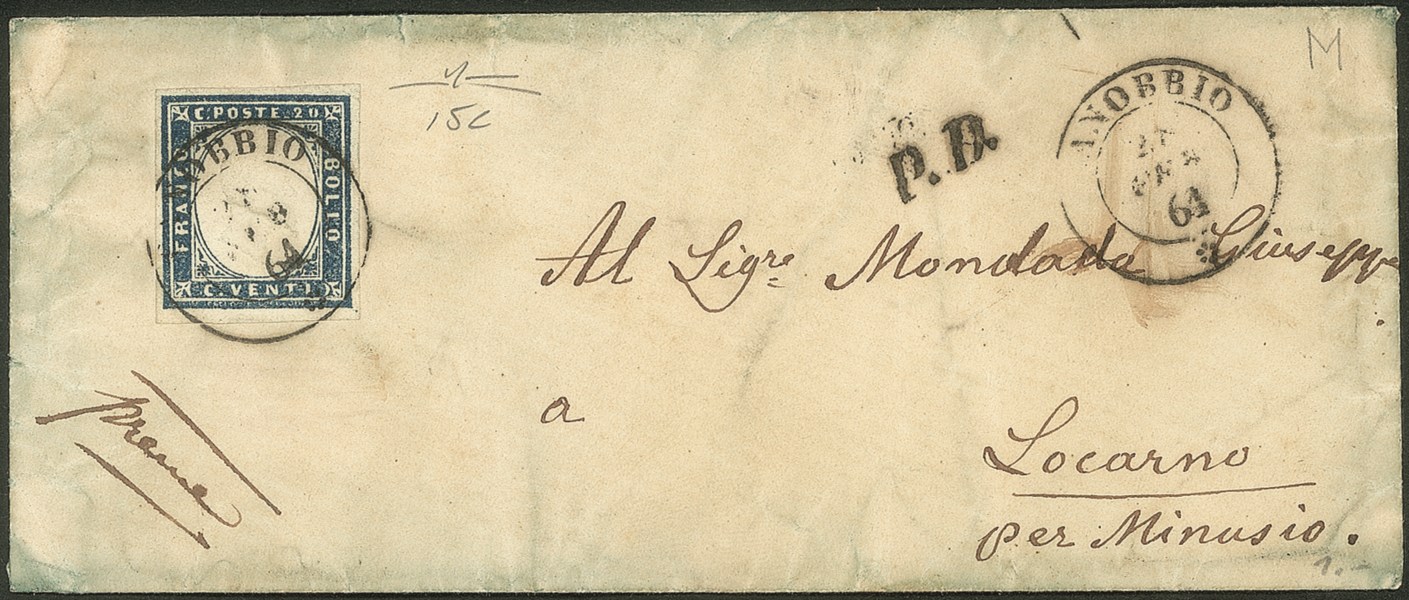 C. POSTE. 20
FRANCO
BOLLO
C. VENTI
NOBBIO
64
15C
P.D.
M
NOBBIO
64
Al Sigre Mondada Giuseppe
a
Locarno
per Minusio.
preme
1.-